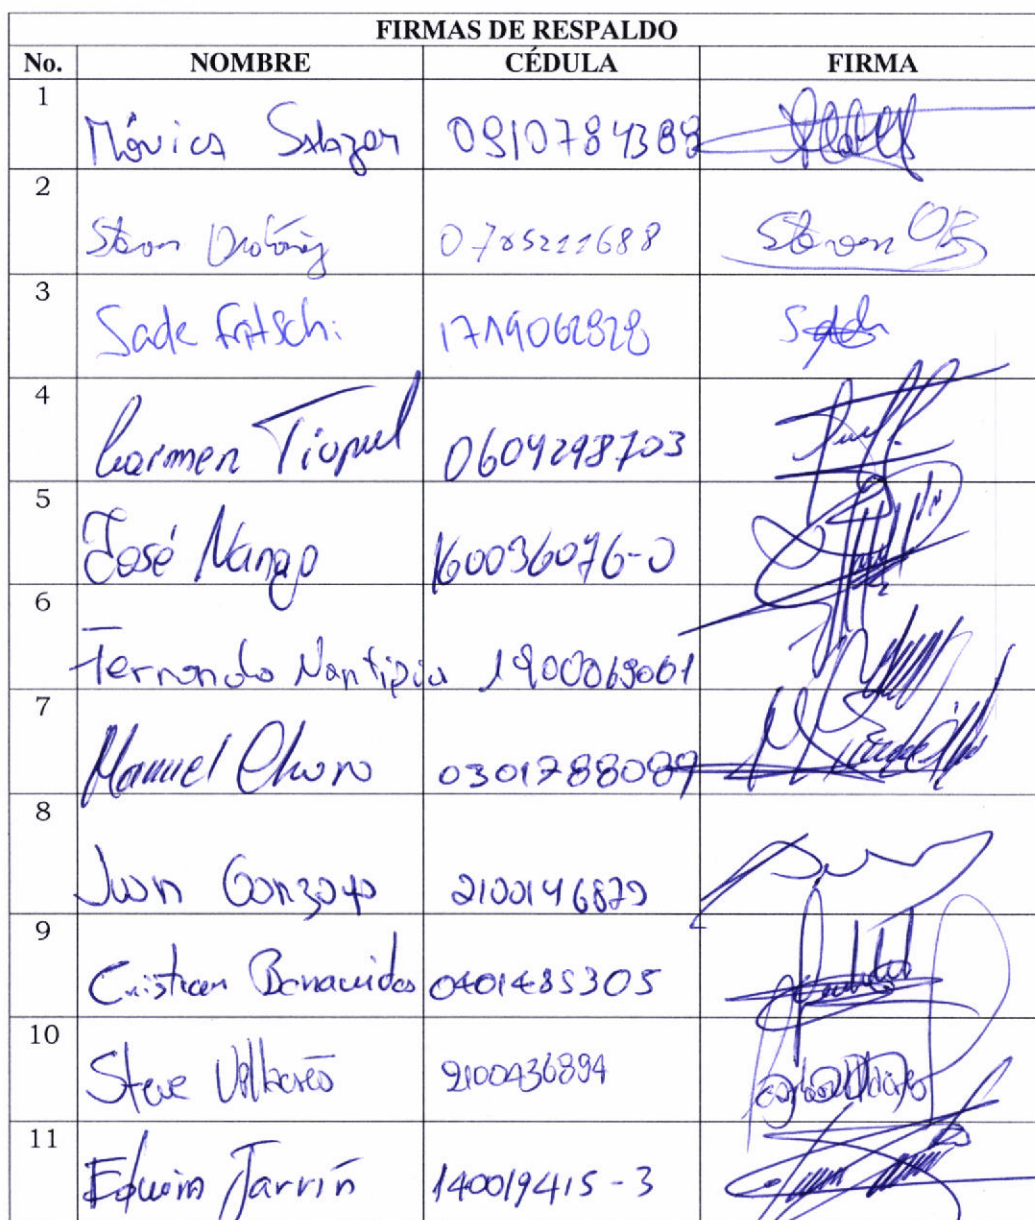 FIRMAS DE RESPALDO
No. NOMBRE CÉDULA FIRMA
1 Mónica Salazar 0910784388
2 Steven 0705211688 Steven
3 Sade Fritschi 1719062828 Sade
4 Carmen Tiupul 0604298703
5 José Nango 160036076-0
6 Fernando Nantipia 1900069061
7 Manuel Choro 0301788089
8 Juan Gonzayo 2100146879
9 Cristian Benavides 0401485305
10 Steve 2100436894
11 Edwin Jarrín 140019415-3